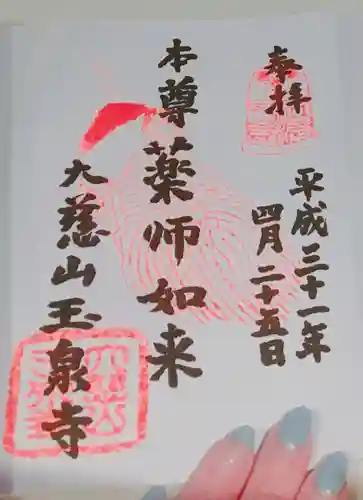 奉拝
平成三十一年
四月二十五日
本尊薬師如来
大慈山玉泉寺